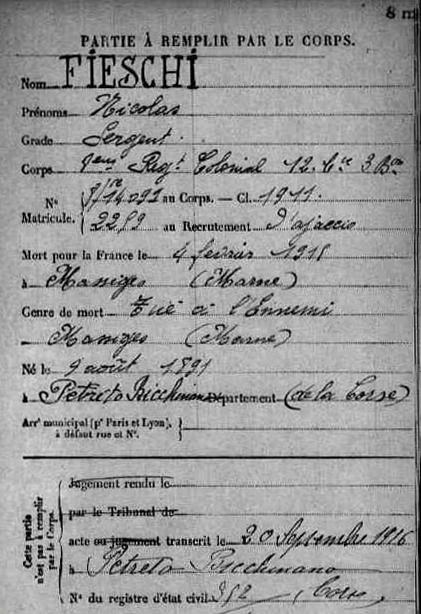 8 m
PARTIE À REMPLIR PAR LE CORPS.
Nom FIESCHI
Prénoms Nicolas
Grade Sergent
Corps 8eme Regt Colonial 12. Cie 3 Bon
N° 14092 au Corps. — Cl. 1911
Matricule. 2259 au Recrutement d'ajaccio
Mort pour la France le 4 fevrier 1915
à Massiges (Marne)
Genre de mort Tué à l'Ennemi
Massiges (Marne)
Né le 9 août 1891
à Petreto Bicchisano Département (de la Corse)
Arrt municipal (pr Paris et Lyon),
à défaut rue et N°.
Cette partie n'est pas à remplir par le Corps.
Jugement rendu le
par le Tribunal de
acte ou jugement transcrit le 20 Septembre 1916
à Petreto Bicchisano
N° du registre d'état civil Corse